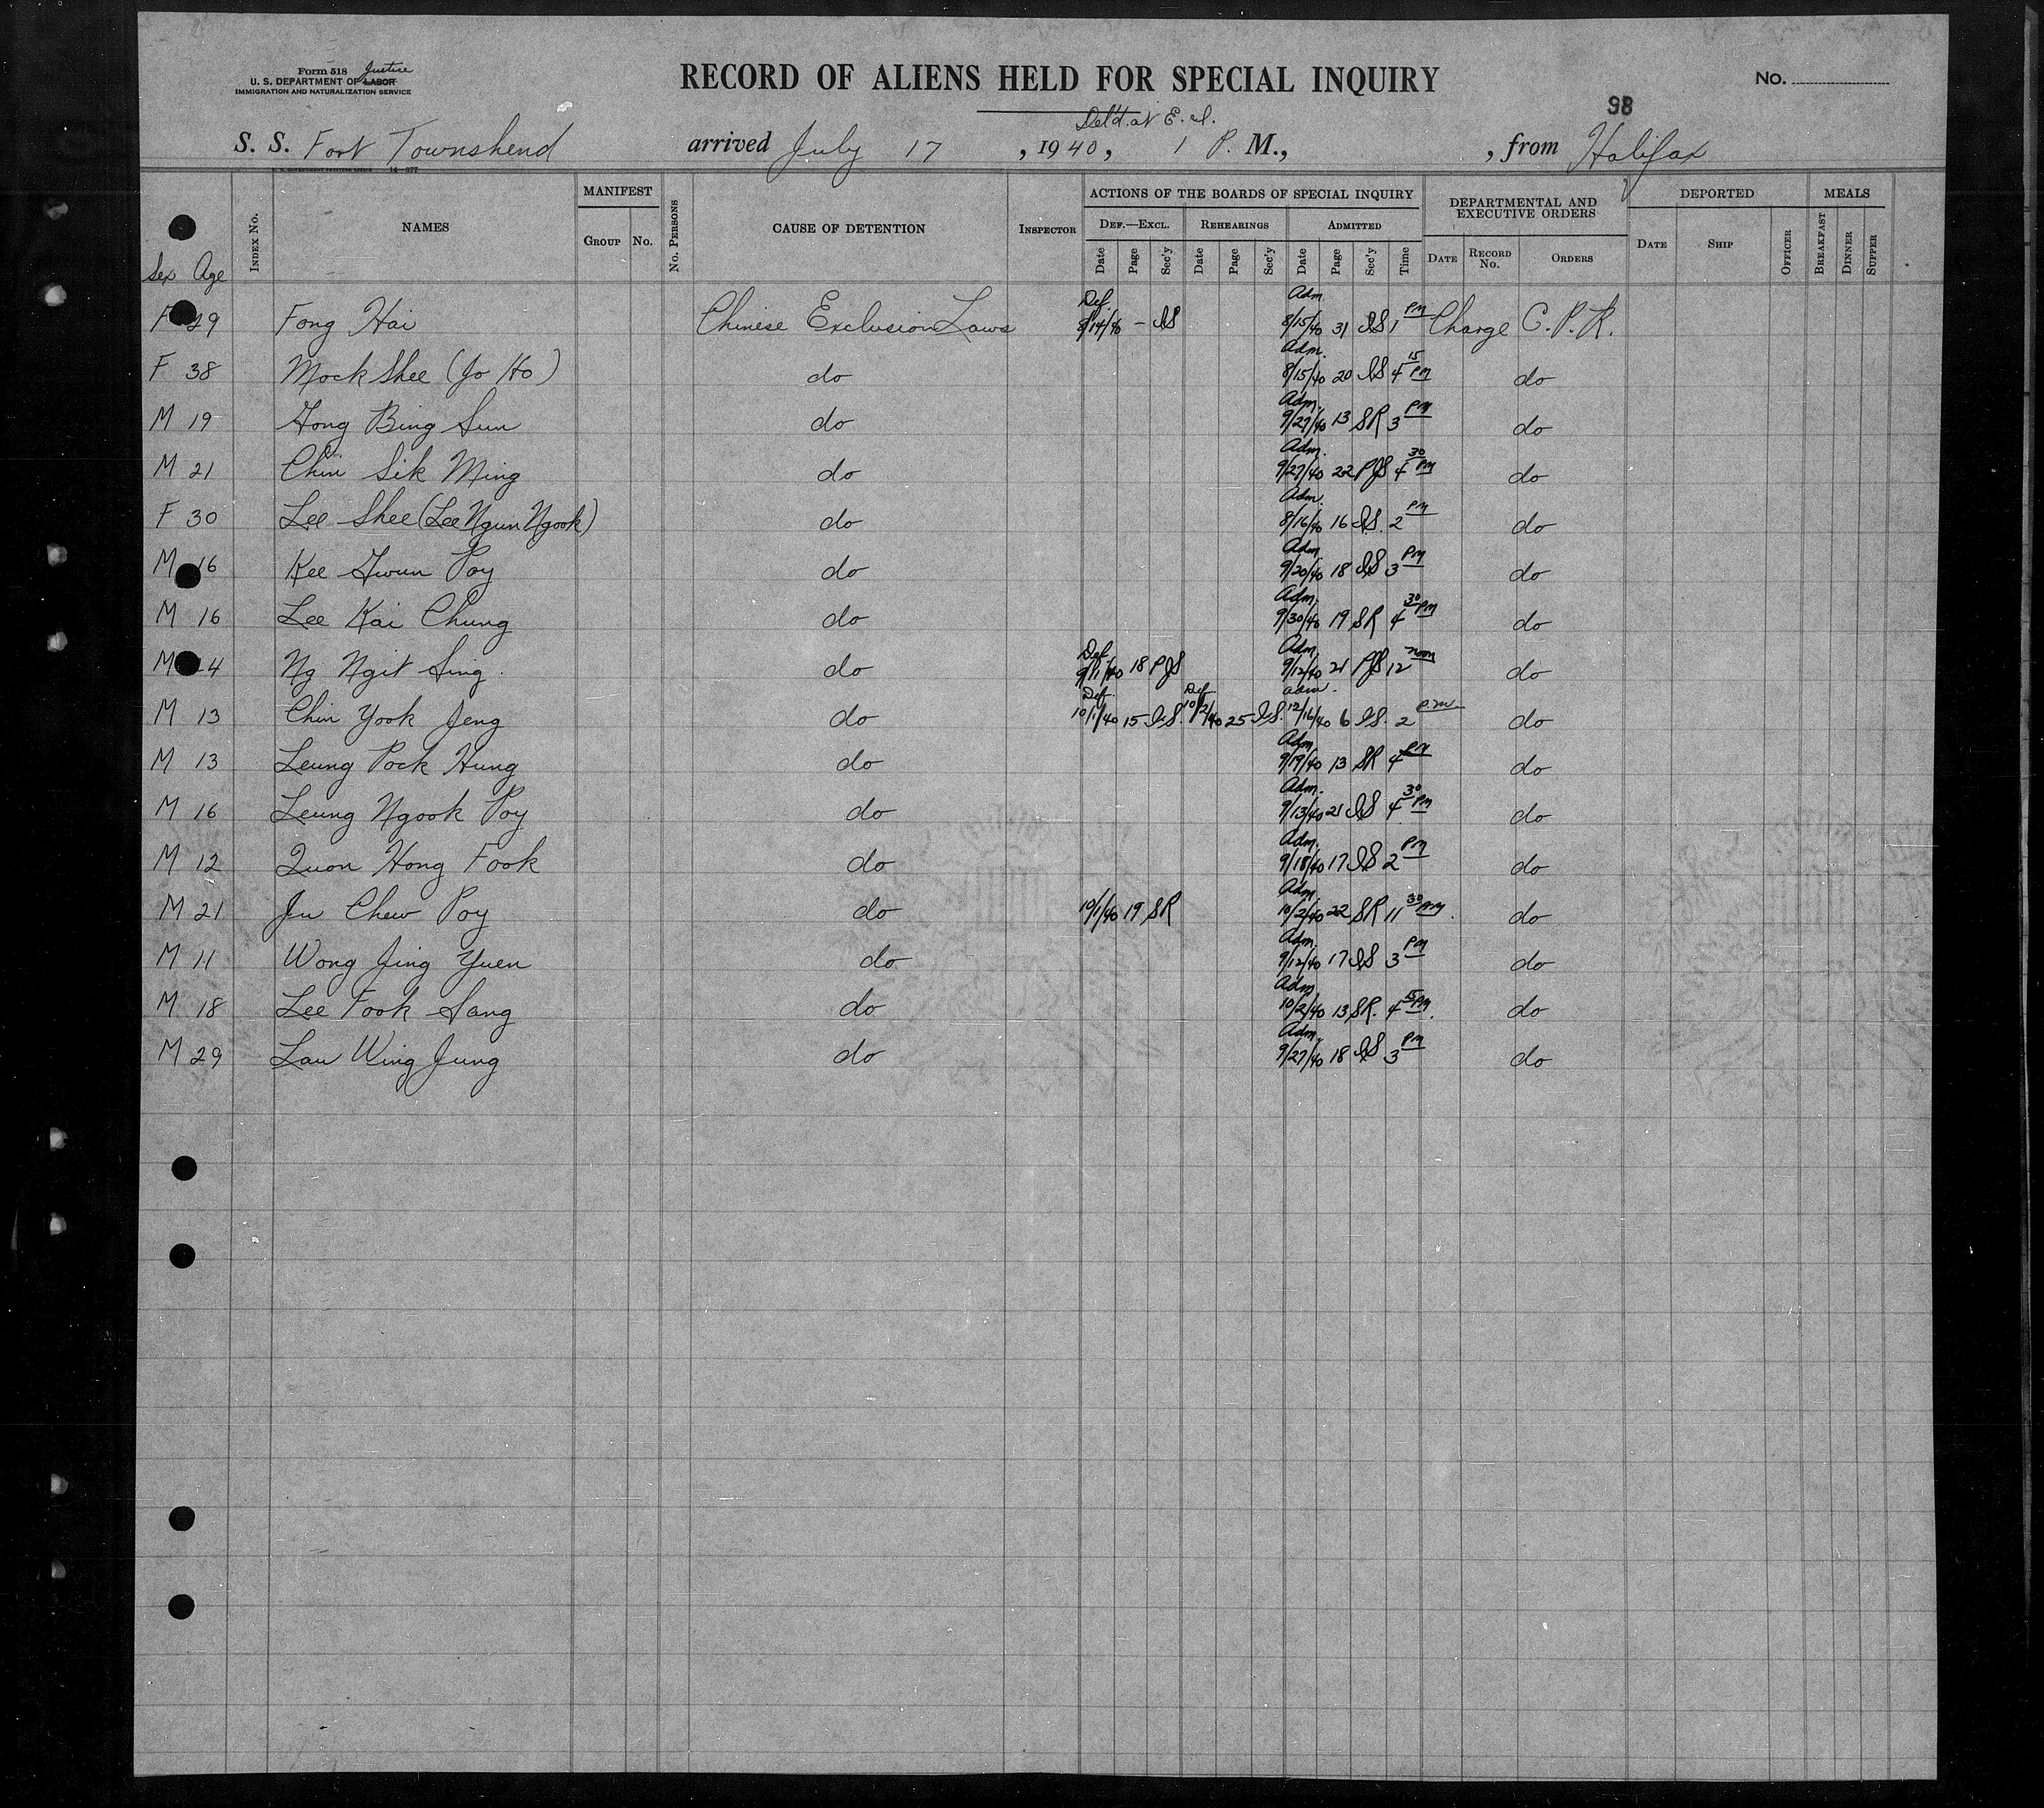 Form 518 Justice
U. S. DEPARTMENT OF LABOR
IMMIGRATION AND NATURALIZATION SERVICE
RECORD OF ALIENS HELD FOR SPECIAL INQUIRY
No.
98
Del'd. at E. I.
S. S. Fort Townshend arrived July 17, 1940, 1 P. M., , from Halifax
14—977
Sex Age
INDEX No.
NAMES
MANIFEST
GROUP No.
No. PERSONS
CAUSE OF DETENTION
INSPECTOR
ACTIONS OF THE BOARDS OF SPECIAL INQUIRY
DEF.—EXCL. REHEARINGS ADMITTED
Date Page Sec'y Date Page Sec'y Date Page Sec'y Time
DEPARTMENTAL AND EXECUTIVE ORDERS
DATE RECORD No. ORDERS
DEPORTED
DATE SHIP OFFICER
MEALS
BREAKFAST DINNER SUPPER
F Fong Hai Chinese Exclusion Laws Def 8/14/40 – IS Adm. 8/15/40 31 IS 1 PM Charge C. P. R.
F 38 Mock Shee (Jo Ho) do Adm. 8/15/40 20 IS 4 15 PM do
M 19 Gong Bing Sun do Adm. 9/27/40 13 SR 3 PM do
M 21 Chin Sik Ming do Adm. 9/27/40 22 PJS 4 30 PM do
F 30 Lee Shee (Lee Ngun Ngook) do Adm. 8/16/40 16 IS. 2 PM do
M 16 Kee Poy do Adm. 9/20/40 18 IS 3 PM do
M 16 Lee Kai Chung do Adm. 9/30/40 19 SR 4 30 PM do
M Ng Ngit Sing. do Def 9/11/40 18 PJS Adm. 9/12/40 21 PJS 12 noon do
M 13 Chin Yook Jeng do Def. 10/1/40 15 IS. Def 10/2/40 25 IS. adm. 12/16/40 6 IS. 2 pm do
M 13 Leung Pock Hung do Adm. 9/19/40 13 SR 4 PM do
M 16 Leung Ngook Poy do Adm. 9/13/40 21 IS 4 30 PM do
M 12 Quon Hong Fook do Adm. 9/18/40 17 IS 2 PM do
M 21 Ju Chew Poy do 10/1/40 19 SR Adm. 10/2/40 22 SR 11 30 AM. do
M 11 Wong Jing Yuen do Adm. 9/12/40 17 IS 3 PM do
M 18 Lee Fook Sang do Adm. 10/2/40 13 SR. 4 PM. do
M 29 Lau Wing Jung do Adm. 9/27/40 18 IS 3 PM do